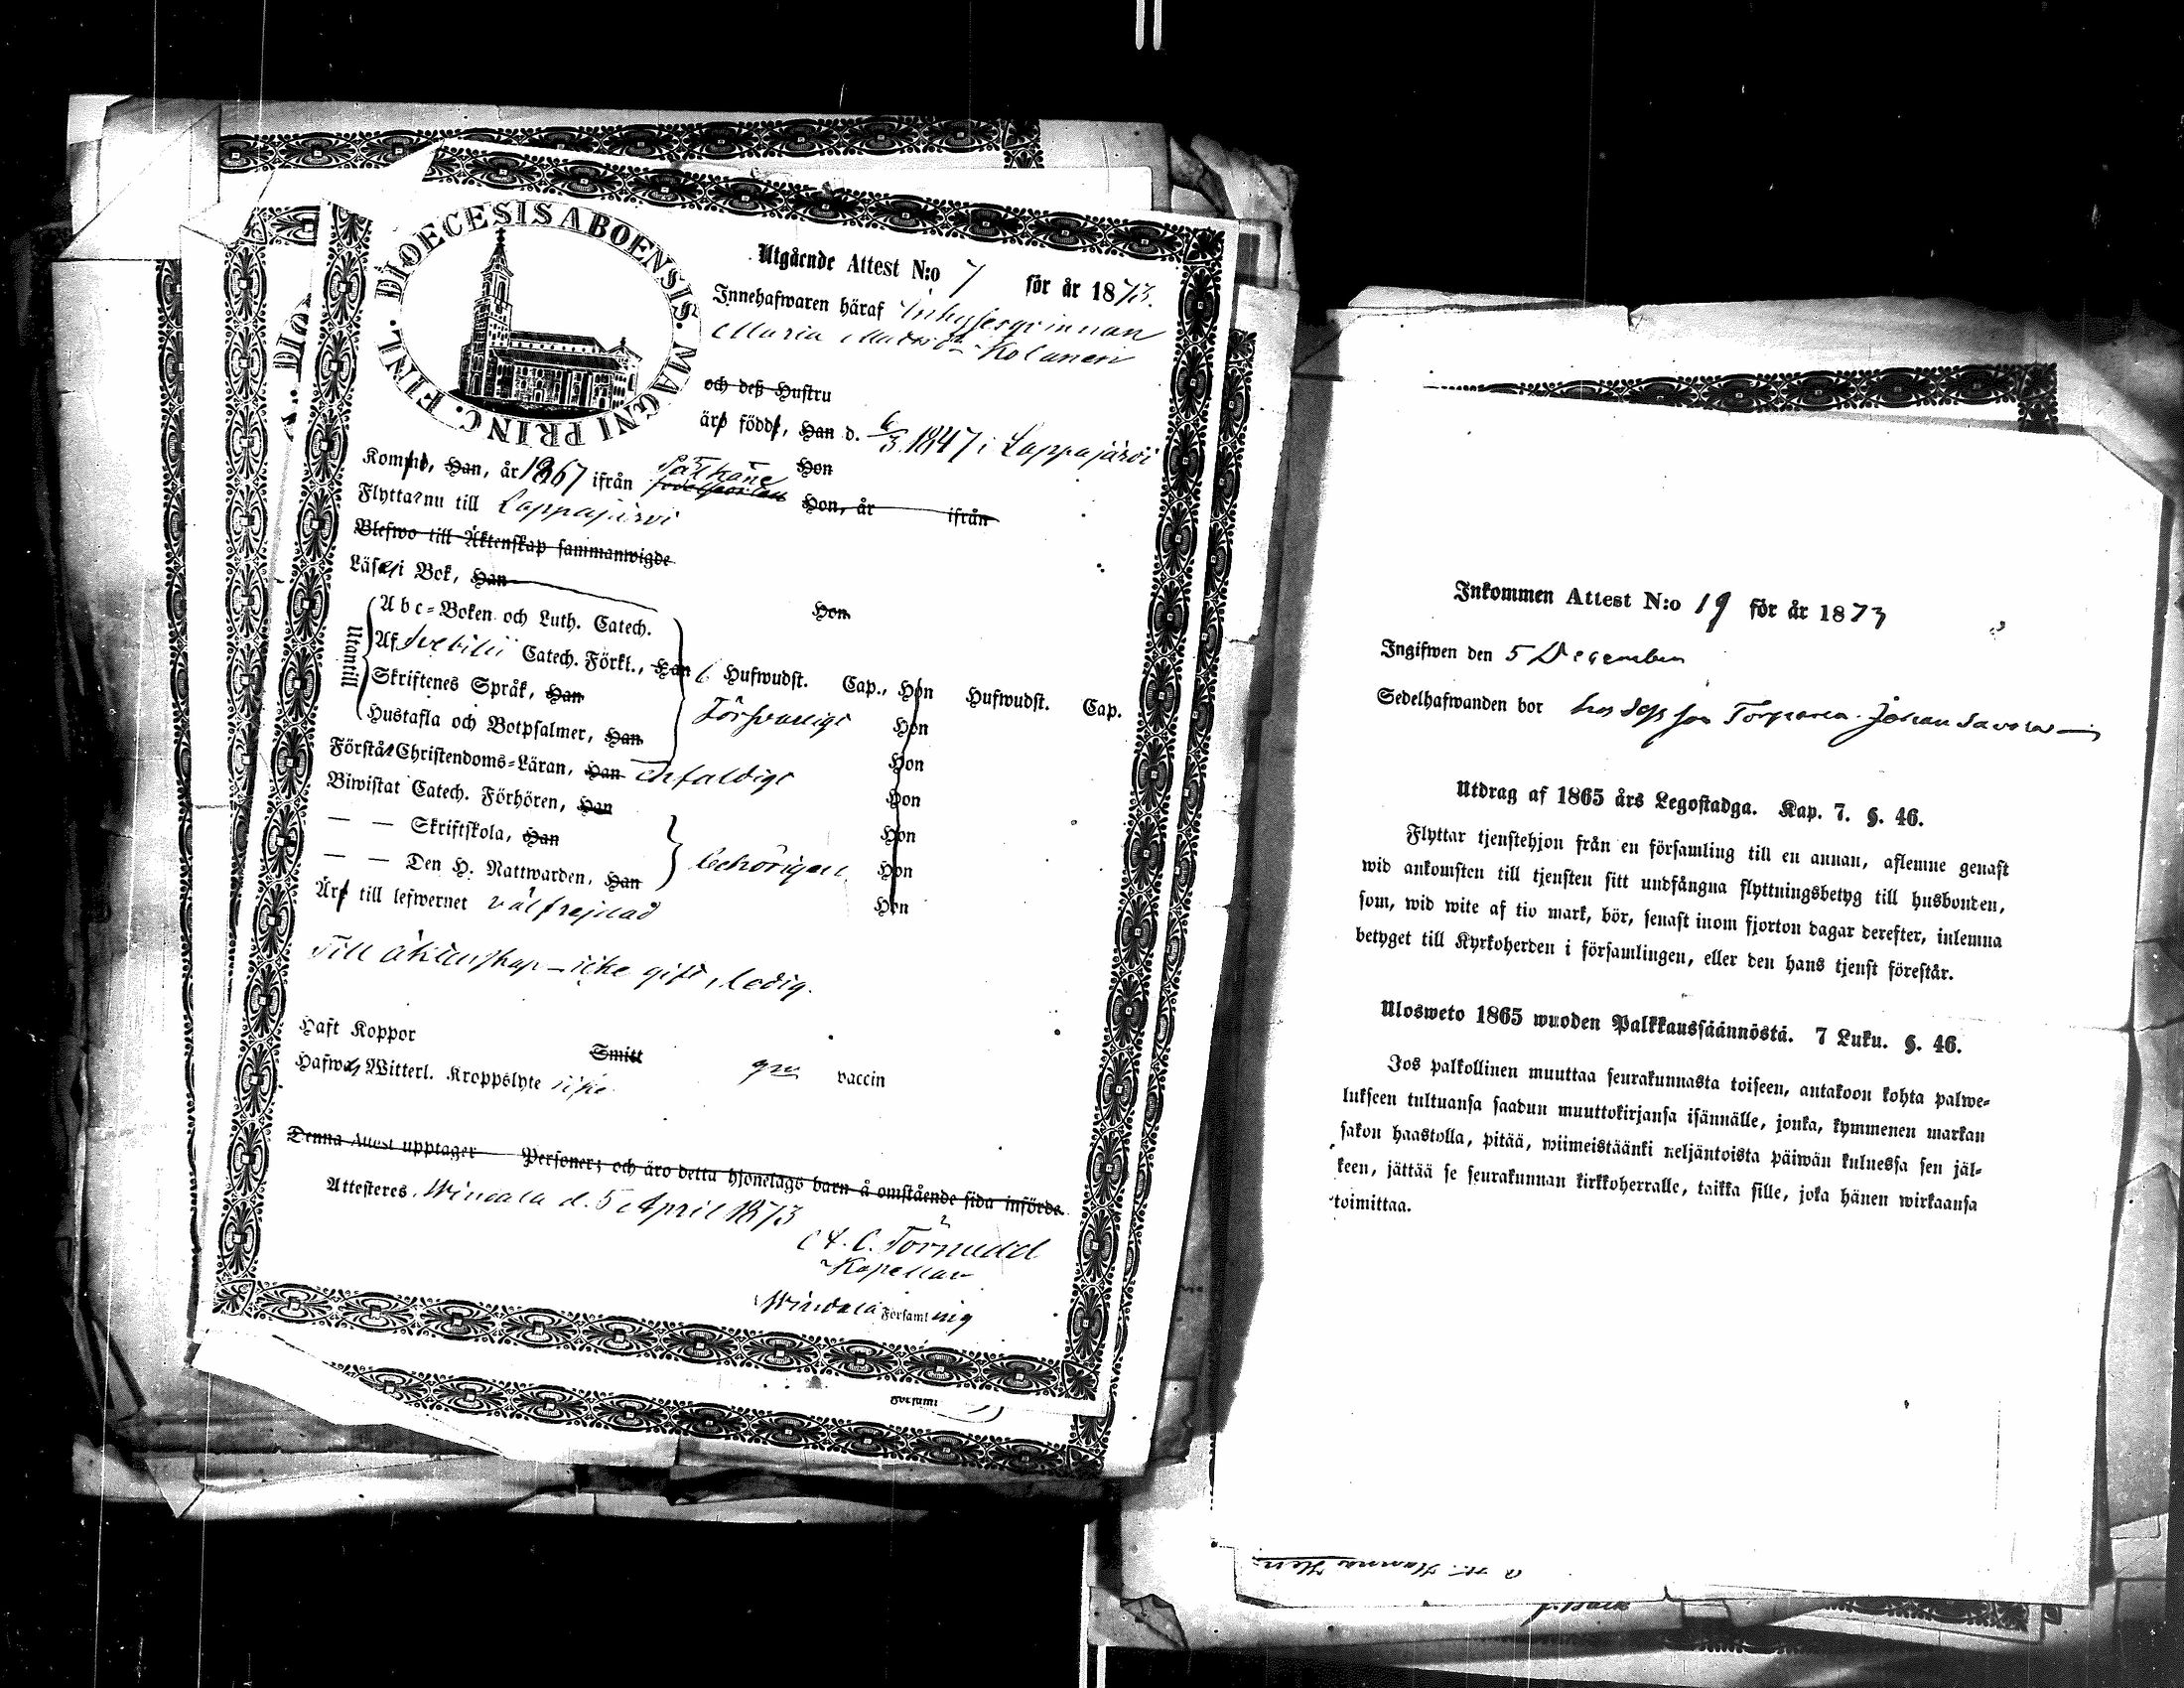 DIOECESIS ABOENSIS. MAGNI PRINC. FINL.
Utgående Attest N:o 7 för år 1873.
Innehafwaren häraf Inhysesqvinnan
Maria Kolanen
och deß Hustru
är född, Han d. 6/3 1847 i Lappajärvi
Hon
Kommit, Han, år 1867 ifrån Pälkäne Hon, år ifrån
Flyttar nu till Lappajärvi
Blefwo till Äktenskap sammanwigde
Läser i Bok, Han Hon
Utantill
Abc-Boken och Luth. Catech.
Af Svebilii Catech. Förkl., Han 6 Hufwudst. Cap., Hon Hufwudst. Cap.
Skriftenes Språk, Han Försvarligt Hon
Hustafla och Botpsalmer, Han Hon
Förstår Christendoms-Läran, Han enfaldigt Hon
Biwistat Catech. Förhören, Han Hon
— — Skriftskola, Han behörigen Hon
— — Den H. Nattwarden, Han Hon
Är till lefwernet välfrejdad
Till äktenskap – icke gift, ledig.
Haft Koppor Smitt gm vaccin
Hafwer Witterl. Kroppslyte icke
Denna Attest upptager Personer; och äro detta hjonelags barn å omstående sida införde.
Attesteras, Windala d. 5 April 1873
A. C. Törnudd
Kapellan
Windala Församling
Församl
Inkommen Attest N:o 19 för år 1873
Ingifwen den 5 December
Sedelhafwanden bor hos Torparen Johan
Utdrag af 1865 års Legostadga. Kap. 7. §. 46.
Flyttar tjenstehjon från en församling till en annan, aflemne genast
wid ankomsten till tjensten sitt undfångna flyttningsbetyg till husbonden,
som, wid wite af tio mark, bör, senast inom fjorton dagar derefter, inlemna
betyget till Kyrkoherden i församlingen, eller den hans tjenst förestår.
Ulosweto 1865 wuoden Palkkaussäännöstä. 7 Luku. §. 46.
Jos palkollinen muuttaa seurakunnasta toiseen, antakoon kohta palwe-
lukseen tultuansa saadun muuttokirjansa isännälle, jonka, kymmenen markan
sakon haastolla, pitää, wiimeistäänki neljäntoista päiwän kuluessa sen jäl-
keen, jättää se seurakunnan kirkkoherralle, taikka sille, joka hänen wirkaansa
toimittaa.